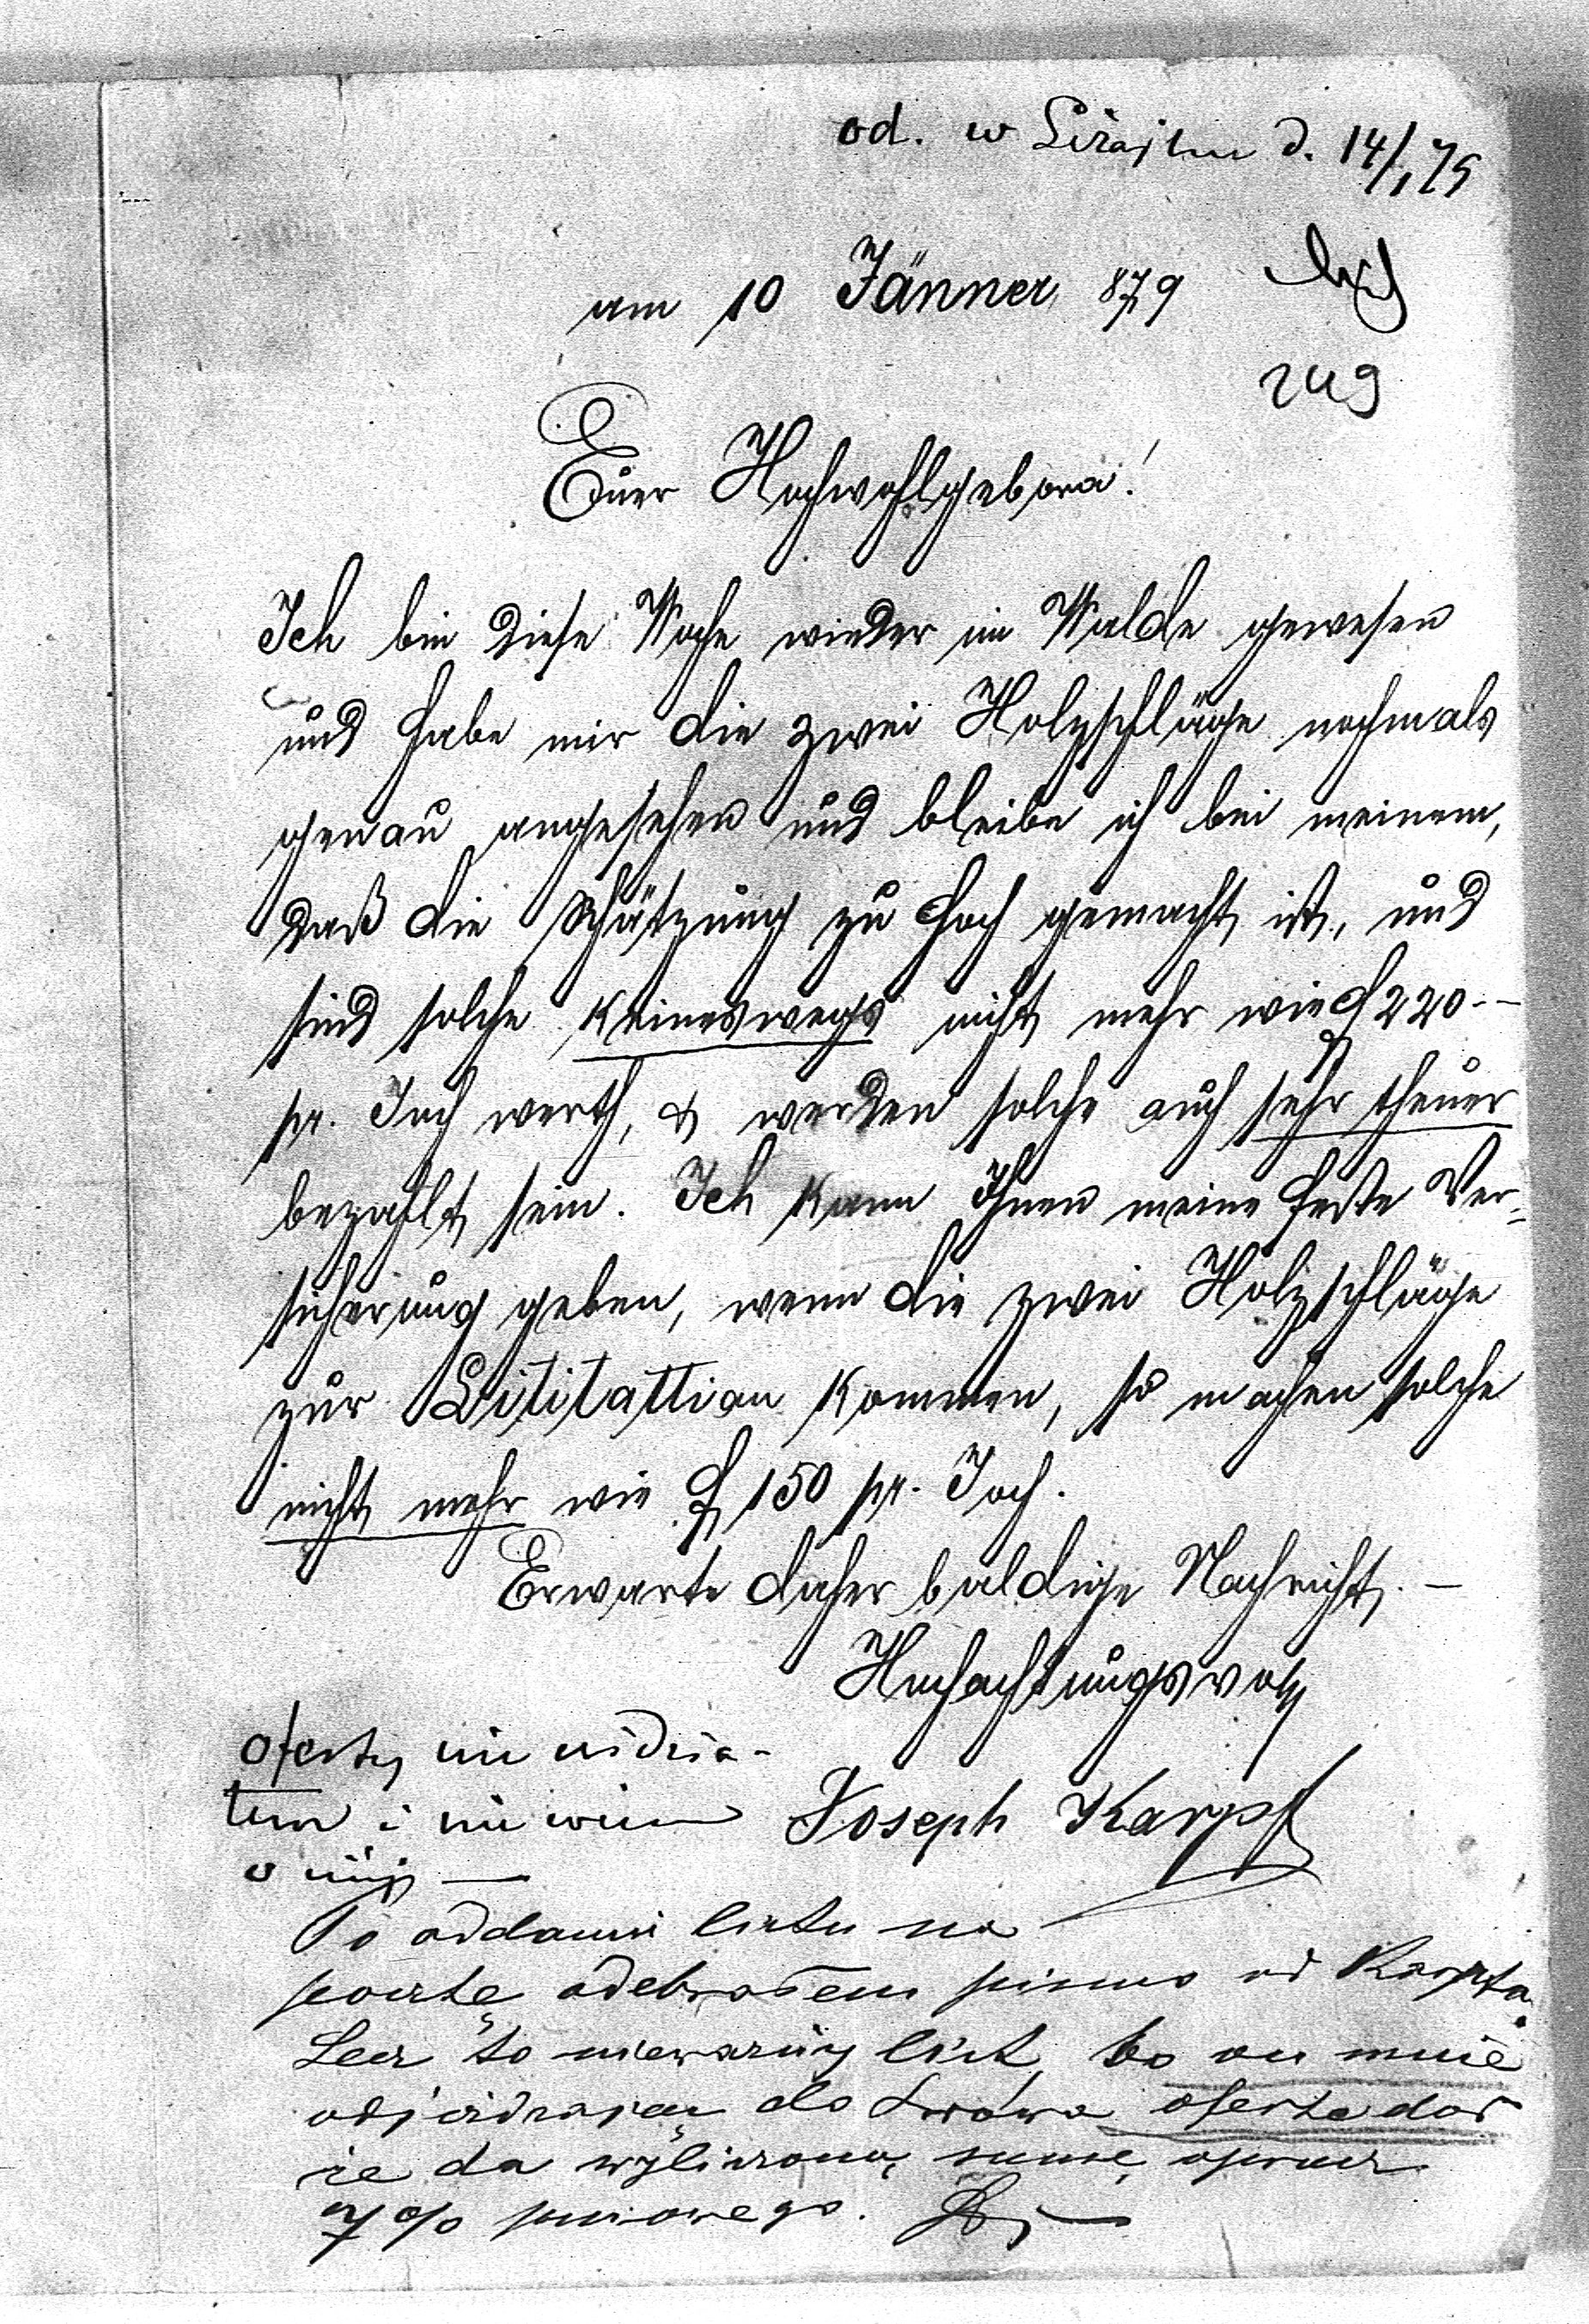 od. w Leżajsku d. 14/1 79
am 10 Jänner 879
249
Euer Hochwohlgeborn!
Ich bin diese Woche wieder im Walde gewesen
und habe mir die zwei Holzschläge nochmals
genau angesehen und bleibe ich bei meinem,
daß die Schätzung zu hoch gemacht ist, und
sind solche keineswegs nicht mehr wie f 220 --
pr. Joch werth, & werden solche auch sehr theuer
bezahlt sein. Ich kann Ihnen meine feste Ver-
sicherung geben, wenn die zwei Holzschläge
zur Lititattion kommen, so machen solche
nicht mehr wie f 150 pr. Joch.
Erwarte daher baldige Nachricht. –
Hochachtungsvoll
Joseph Karpf
oferty nie widzia-
łem i nie wiem
o niej —
Po oddaniu listu na
pocztę odebrałem pismo od Karpfa.
Lecz to nieważny list, bo on mnie
odjeżdżając do Lwowa oferte dał
że da wyliczoną sumę oprócz
7 %